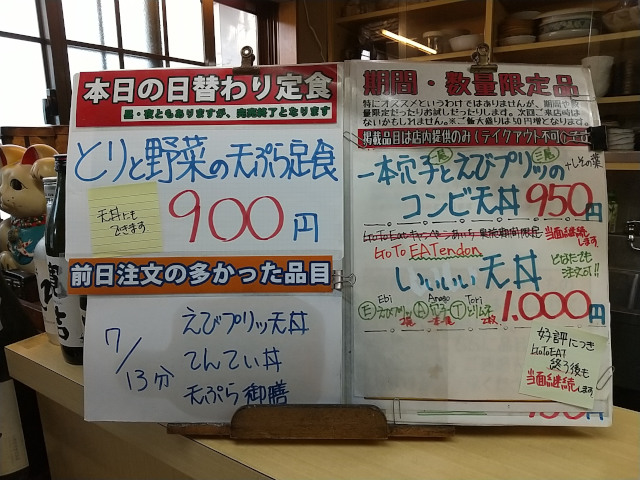 本日の日替わり定食
昼・夜ともありますが、完売終了となります
とりと野菜の天ぷら定食
天丼にも
できます
900円
前日注文の多かった品目
7/13分
えびプリッ天丼
てんてい丼
天ぷら御膳
期間・数量限定品
特にオススメというわけではありませんが、期間や数
量限定だったりお試しだったりします。次回ご来店時は
ないかもしれません。※ご飯大盛りは50円増となります。
掲載品目は店内提供のみ(テイクアウト不可)
一本穴子とえびプリッの
+しその葉
コンビ天丼 950円
当面継続します
GoTo EATendon
いいいい天丼
どなたでも
注文可!!
1,000円
Ebi
Anago
Tori
E
A
T
好評につき
GoToEAT
終了後も
当面継続します